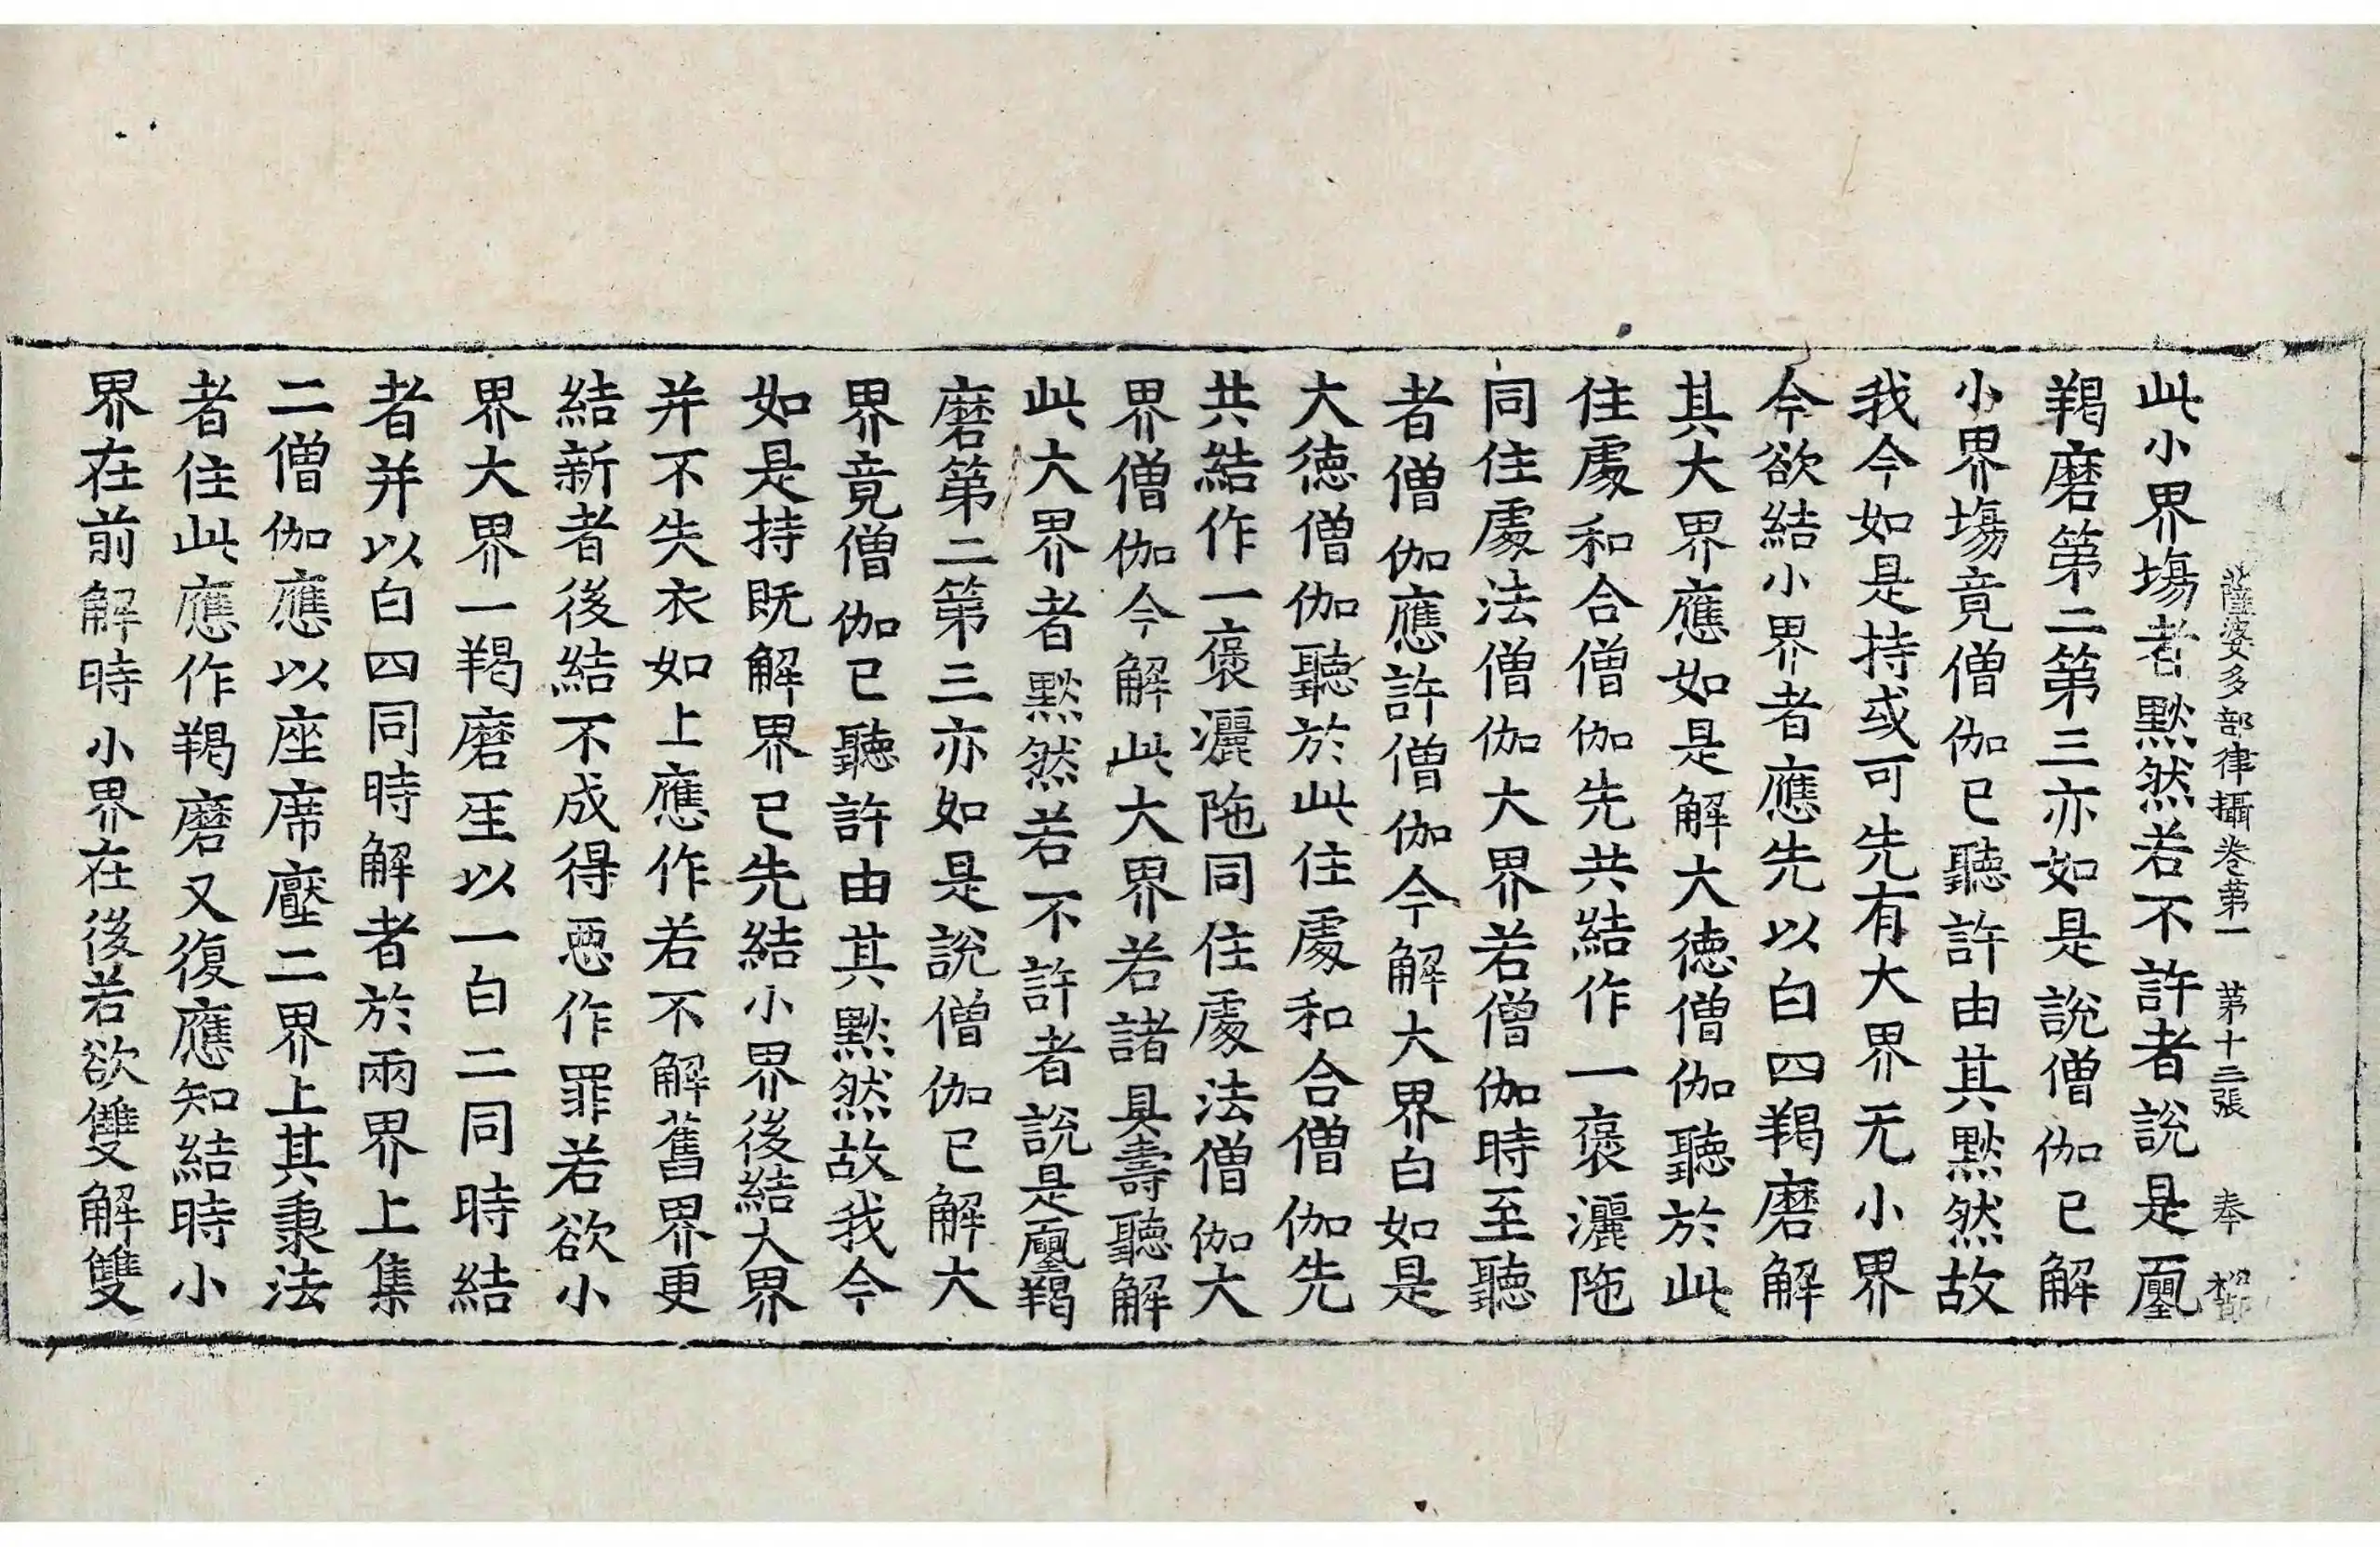 薩婆多部律攝卷第一 第十三張 奉
此小界塲者黙然若不許者說是𠁅
羯磨第二第三亦如是說僧伽已解
小界塲竟僧伽已聽許由其黙然故
我今如是持或可先有大界无小界
今欲結小界者應先以白四羯磨解
其大界應如是解大德僧伽聽於此
住處和合僧伽先共結作一褒灑陁
同住處法僧伽大界若僧伽時至聽
者僧伽應許僧伽今解大界白如是
大德僧伽聽於此住處和合僧伽先
共結作一褒灑陁同住處法僧伽大
界僧伽今解此大界若諸具壽聽解
此大界者黙然若不許者說是𠁅羯
磨第二第三亦如是說僧伽已解大
界竟僧伽已聽許由其黙然故我今
如是持既解界已先結小界後結大界
并不失衣如上應作若不解舊界更
結新者後結不成得惡作罪若欲小
界大界一羯磨𤯔以一白二同時結
者并以白四同時解者於兩界上集
二僧伽應以座席壓二界上其秉法
者住此應作羯磨又復應知結時小
界在前解時小界在後若欲雙解雙